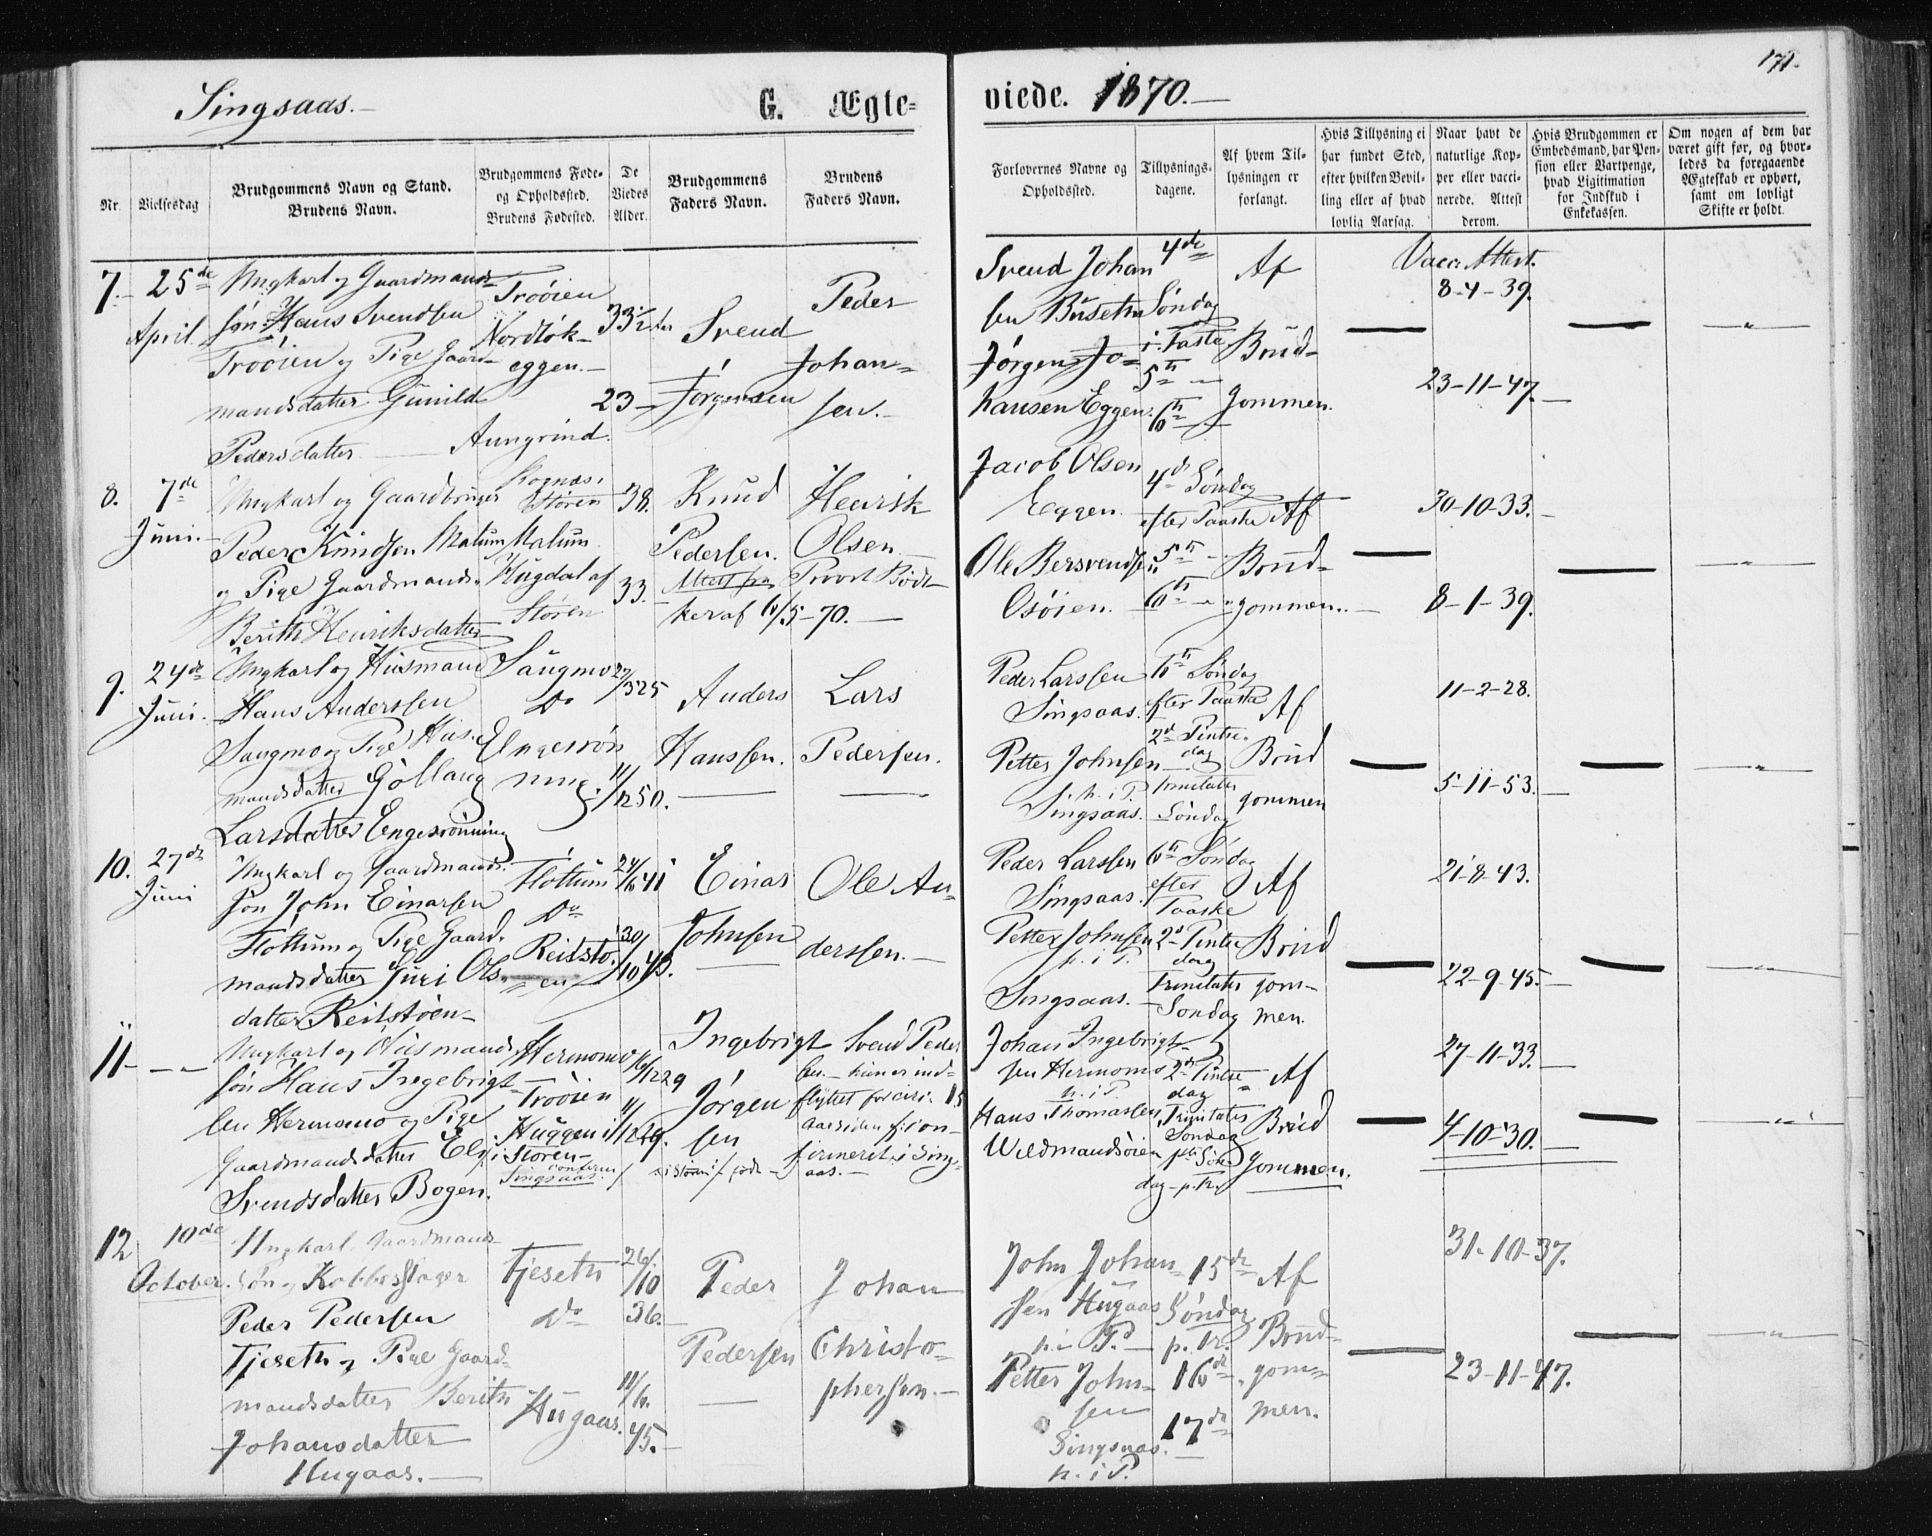 Singsaas.
G. Ægte-
viede. 1870.
171.
Nr.
Vielsesdag
Brudgommens Navn og Stand.
Brudens Navn.
Brudgommens Føde-
og Opholdssted.
Brudens Fødested.
De
Viedes
Alder.
Brudgommens
Faders Navn.
Brudens
Faders Navn.
Forlovernes Navne og
Opholdssted.
Tillysnings-
dagene.
Af hvem Til-
lysningen er
forlangt.
Hvis Tillysning ei
har fundet Sted,
efter hvilken Bevil-
ling eller af hvad
lovlig Aarsag.
Naar havt de
naturlige Kop-
per eller vacci-
nerede. Attest
derom.
Hvis Brudgommen er
Embedsmand, har Pen-
sion eller Vartpenge,
hvad Ligitimation
for Indskud i
Enkekassen.
Om nogen af dem har
været gift før, og hvor-
ledes da foregaaende
Ægteskab er ophørt,
samt om lovligt
Skifte er holdt.
7. 25de
April
Ungkarl og Gaardmands
søn Hans Svendsen
Trøøien og Pige Gaard-
mandsdatter Gunild
Pedersdatter
Trøøien
eggen.
Aungrind.
33½
23
Svend
Jørgensen
Peder
Johan-
sen.
Svend Johan
sen Buseth
Jørgen Jo-
hansen Eggen.
4de
Søndag
i Faste
5te
6te
Af
Brud-
gommen.
Vacc. Attest.
8-4-39.
23-11-47.
8. 7de
Juni.
Ungkarl og Gaardbruger
Peder Knudsen Malum
og Pige Gaardmands
Berith Henriksdatter
Støren
Malum
Hugdal af
Støren
38.
33.
Knud
Pedersen.
Henrik
Olsen
Attest fra Provst Bødt-
ker af 6/5-70.
Jacob Olsen
Eggen
Ole Bersvendsen
Osøien.
4de Søndag
efter Paaske
5te
6te
Af
Brud-
gommen.
30-10-33.
8-1-39.
9. 24de
Juni.
Ungkarl og Husmand
Hans Anderssen
Saugmo og Pige Hus-
mandsdatter Göllaug
Larsdatter Engesrönning
Saugmo
Do
Engesrön
ning.
27/3 25
11/12 50.
Anders
Hanssen.
Lars
Pedersen.
Peder Larssen
Singsaas.
Petter Johnsen
h. i P.
Singsaas.
6te Søndag
efter Paaske
2d Pintse-
dag
Trinitatis
Søndag
Af
Brud
gommen
11-2-28.
5-11-53.
10. 27de
Juni
Ungkarl og Gaardmands-
søn John Einarsen
Flottum og Pige Gaard-
mandsdatter Guri Ols-
datter Reitstøen
Flottum
Do
Reitstø-
en
24/6 41
30/10 43.
Einar
Johnsen
Ole An-
derssen.
Peder Larssen
Singsaas.
Petter Johnsen
h. i P.
Singsaas.
6te Søndag
efter
Paaske
2d Pintse
dag
Trinitatis
Søndag
Af
Brud
gom-
men.
21-8-43.
22-9-45.
11
Ungkarl og Husmands
søn Hans Ingebrigt-
sen Hermomo og Pige
Gaardmandsdatter Eli
Svendsdatter Bogen.
Hermomo
Trøøien
Huggen i
Støren
Singsaas.
16/12 29
11/12 29.
Ingebrigt
Jørgen
sen
Svend Peder
sen - hun er ind-
flyttet for circ. 15
Aar siden f: con-
firmeret i Sing-
aas.
Johan Ingebrigt-
sen Hermomo
h. i P.
Hans Thomassen
2den Pintse
dag
Trinitatis
Søndag
Af
Brud
gommen.
27-11-33.
4-10-30.
12 10de
October.
Ungkarl, Gaardmands-
Søn og Kobberslager
Peder Pedersen
Fjeseth og Pige Gaard-
mandsdatter Berith
Johansdatter
Hugaas.
Fjeseth
Do
Hugaas.
26/10
36.
11/6.
45.
Peder
Pedersen
Johan
Christo-
phersen.
John Johan-
sen Hugaas
h. i P.
Petter John-
sen
Singsaas.
h. i P.
15de
Søndag
p. tr.
16de
17de
Af
Brud-
gom-
men.
31-10-37.
23-11-47.